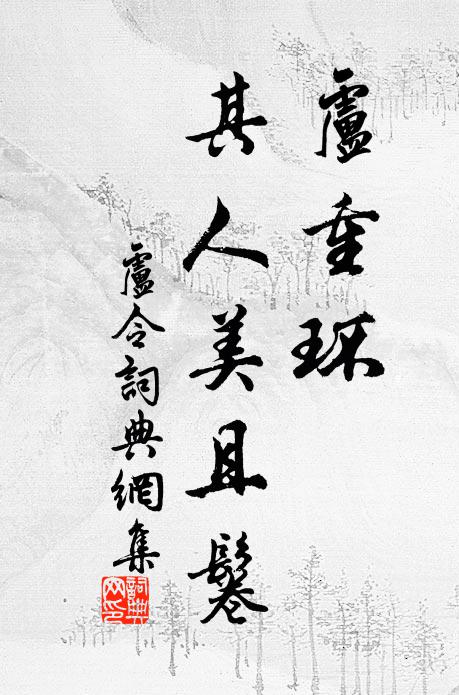 盧重环
其人美且鬈
盧令詞典網集
詞典
网印